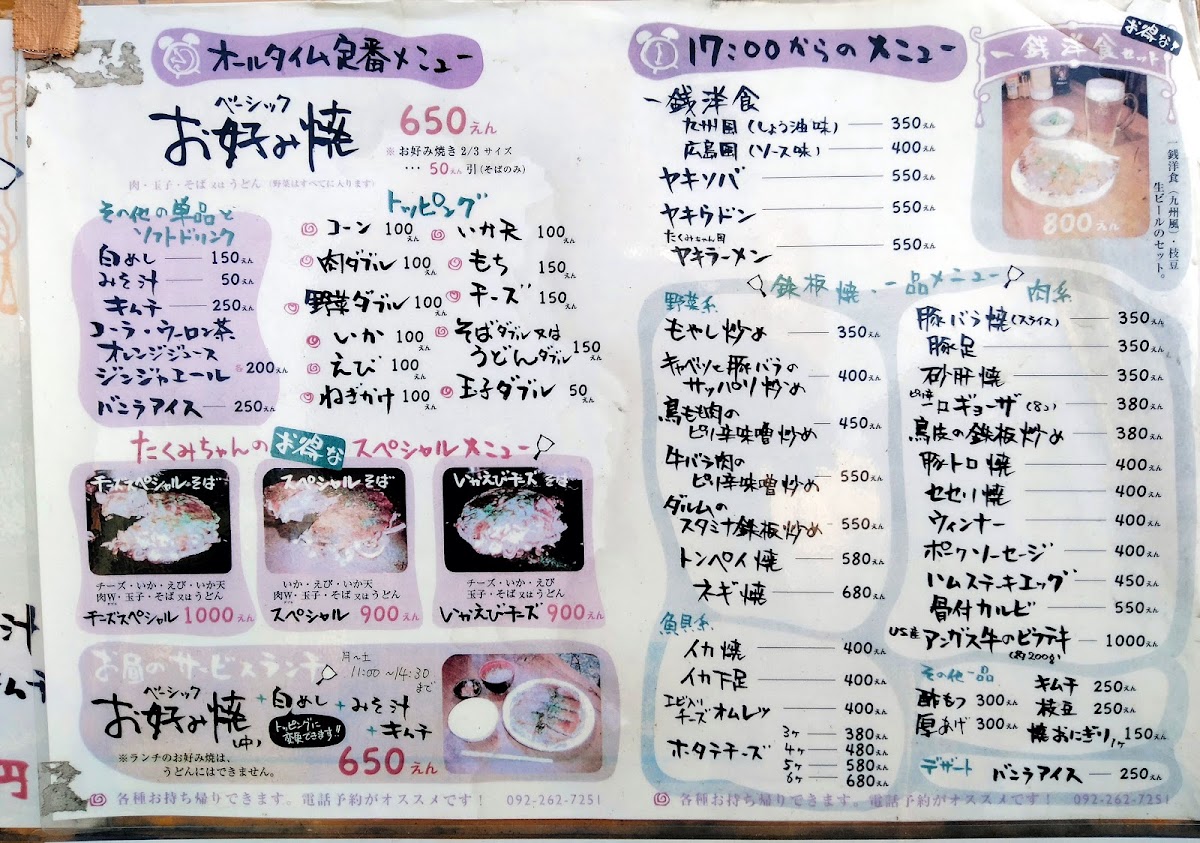 オールタイム定番メニュー
ベーシック
お好み焼 650えん
※お好み焼き2/3サイズ
…50えん引(そばのみ)
肉・玉子・そば又はうどん(野菜はすべてに入ります)
その他の単品と
ソフトドリンク
白めし 150えん
みそ汁 50えん
キムチ 250えん
コーラ・ウーロン茶
オレンジジュース
ジンジャエール 各200えん
バニラアイス 250えん
トッピング
コーン 100えん
肉ダブル 100えん
野菜ダブル 100えん
いか 100えん
えび 100えん
ねぎかけ 100えん
いか天 100えん
もち 150えん
チーズ 150えん
そばダブル又は
うどんダブル 150えん
玉子ダブル 50えん
たくみちゃんのお得なスペシャルメニュー
チーズスペシャルそば
チーズ・いか・えび・いか天
肉W・玉子・そば又はうどん
チーズスペシャル 1000えん
スペシャルそば
いか・えび・いか天
肉W・玉子・そば又はうどん
スペシャル 900えん
いかえびチーズそば
チーズ・いか・えび
肉・玉子・そば又はうどん
いかえびチーズ 900えん
お昼のサービスランチ
月〜土
11:00〜14:30
まで
ベーシック
お好み焼(中)+白めし+みそ汁
+キムチ
トッピングに
変更できます!!
※ランチのお好み焼は、
うどんにはできません。
650えん
各種お持ち帰りできます。電話予約がオススメです! 092-262-7251
17:00からのメニュー
一銭洋食
九州風(しょう油味) 350えん
広島風(ソース味) 400えん
ヤキソバ 550えん
ヤキウドン 550えん
たくみちゃん風
ヤキラーメン 550えん
お得な!
一銭洋食セット
800えん
一銭洋食(九州風)・枝豆
生ビールのセット。
鉄板焼、一品メニュー
野菜系
もやし炒め 350えん
キャベツと豚バラの
サッパリ炒め 400えん
鳥もも肉の
ピリ辛味噌炒め 450えん
牛バラ肉の
ピリ辛味噌炒め 550えん
ダルムの
スタミナ鉄板炒め 550えん
トンペイ焼 580えん
ネギ焼 680えん
魚貝系
イカ焼 400えん
イカ下足 400えん
エビ入り
チーズオムレツ 400えん
ホタテチーズ
3ヶ 380えん
4ヶ 480えん
5ヶ 580えん
6ヶ 680えん
肉系
豚バラ焼(スライス) 350えん
豚足 350えん
砂肝焼 350えん
一口ギョーザ(8コ) 380えん
鳥皮の鉄板炒め 380えん
豚トロ焼 400えん
セセリ焼 400えん
ウィンナー 400えん
ポークソーセージ 400えん
ハムステーキエッグ 450えん
骨付カルビ 550えん
US産アンガス牛のビフテキ 1000えん
(約200g)
その他一品
酢もつ 300えん
厚あげ 300えん
キムチ 250えん
枝豆 250えん
焼おにぎり1ヶ 150えん
デザート
バニラアイス 250えん
各種お持ち帰りできます。電話予約がオススメです! 092-262-7251